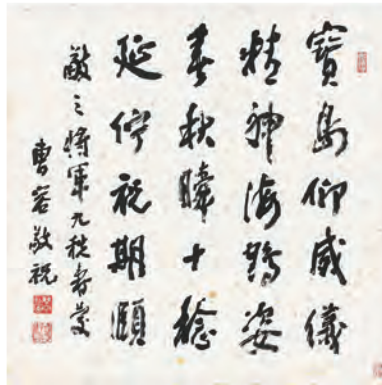 寶島仰威儀
精神海鶴姿
春秋賸十稔
延佇祝期頤
之將軍九秩壽慶
曹容敬祝